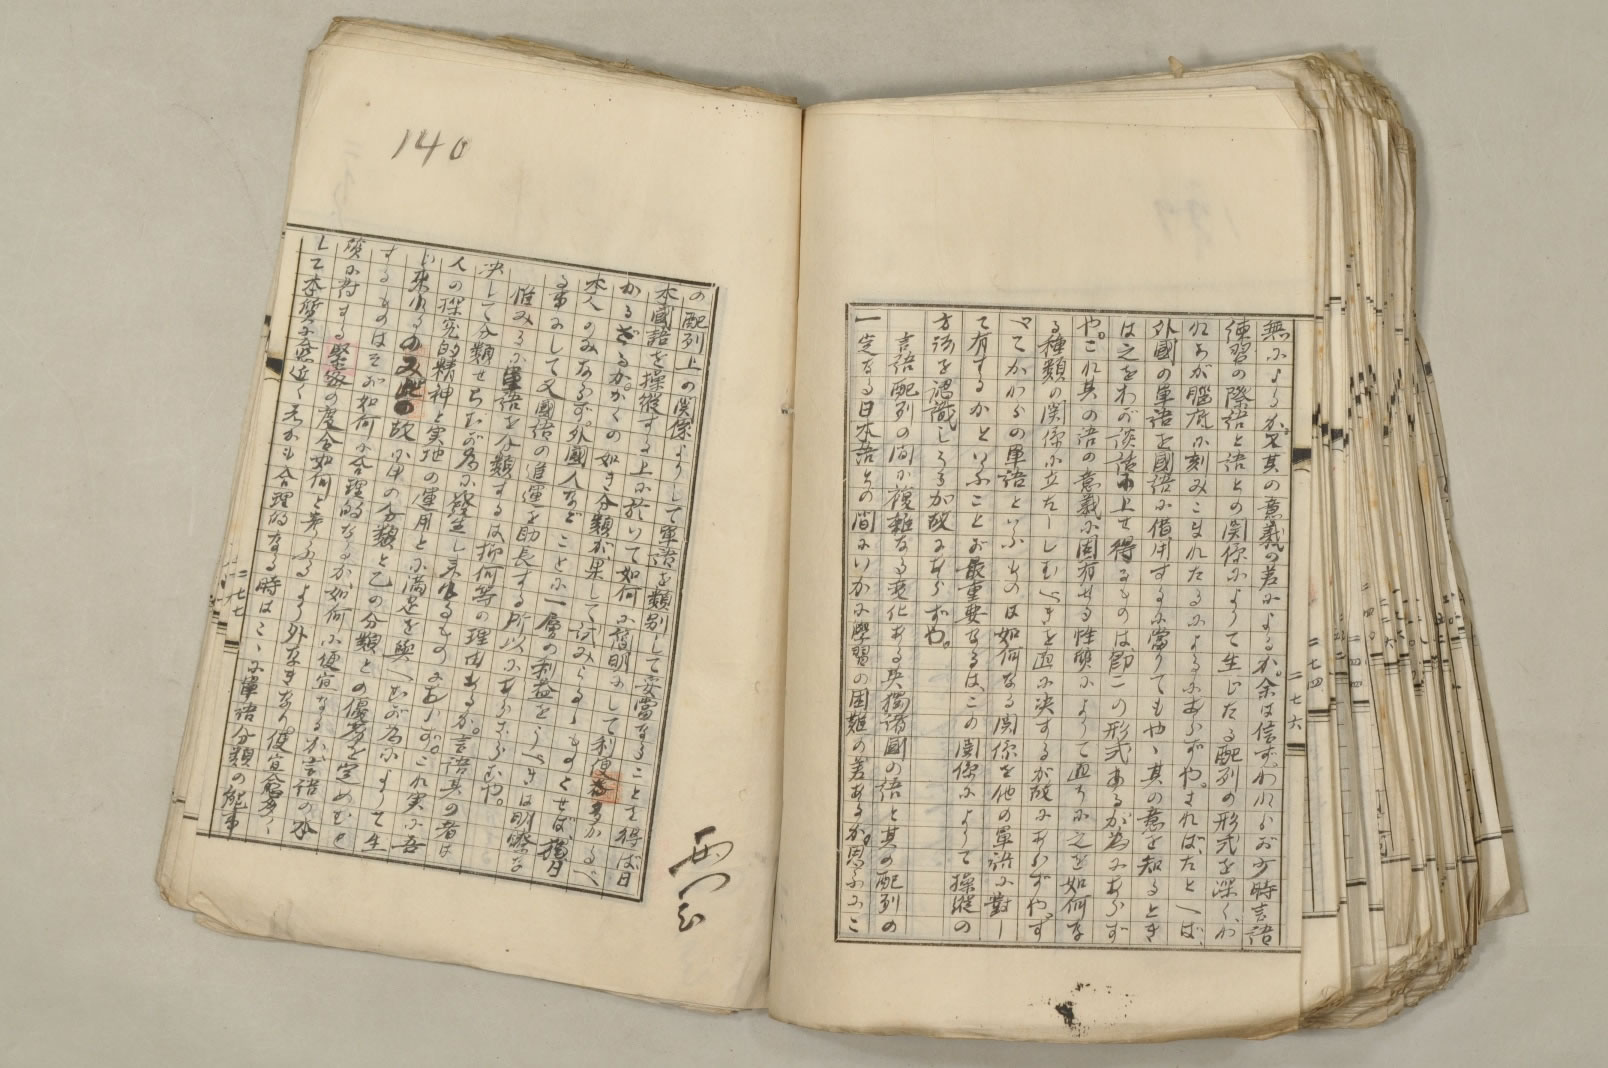 無によるか又其の意義の差によるか。余は信ず、われらが少時言語
練習の際語と語との関係によりて生じたる配列の形式を深く、わ
れらが脳底に刻みこまれたるによるにあらずや。さればたとへば、
外國の單語を國語に借用するに當りてもやゝ其の意を知るとき
は之をわが談話に上せ得るものは、即一の形式あるが為にあらず
や。これ其の語の意義に固有せる性質によりて直ちに之を如何な
る種類の関係に立たしむべきを直に決するが故にあらずや。す
べてかれらの單語といふものは如何なる関係を他の單語に對し
て有するかといふことが最重要なるは、この関係によりて操縦の
方法を認識しうるが故にあらずや。
言語配列の間に複雑なる変化ある英獨諸國の語と其の配列の
一定なる日本語との間にいかに學習の困難の差あるか。思ふにこ
二七六
の配列上の関係よりして單語を類別して妥當なることを得ば日
本國語を操縦する上に於いて如何に簡明にして利便多かるべ
かるざるか。かくの如き分類が果して試みらるゝものとせば、獨日
本人のみならず、外國人などことに一層の利益をうくべきは明瞭な
る事にして又國語の進運を助長する所以にあらざらむや。
惟みるに單語を分類するは抑何等の理由あるか。言語其の者は
決して分類せられむが為に發生し來れるものにあらず。これ実に吾
人の探究的精神と実地の運用とに満足を與へむが為によりて生
じ來れるのみ。此の故に甲の分類と乙の分類との優劣を定めむと
するものはそが如何に合理的なるか、如何に便宜なるか、言語の本
質に対する緊密の度合如何と考ふるより外なきなり。便宜多く
して本質に近くしかも合理的なる時はこゝに單語分類の能事
二七七
140